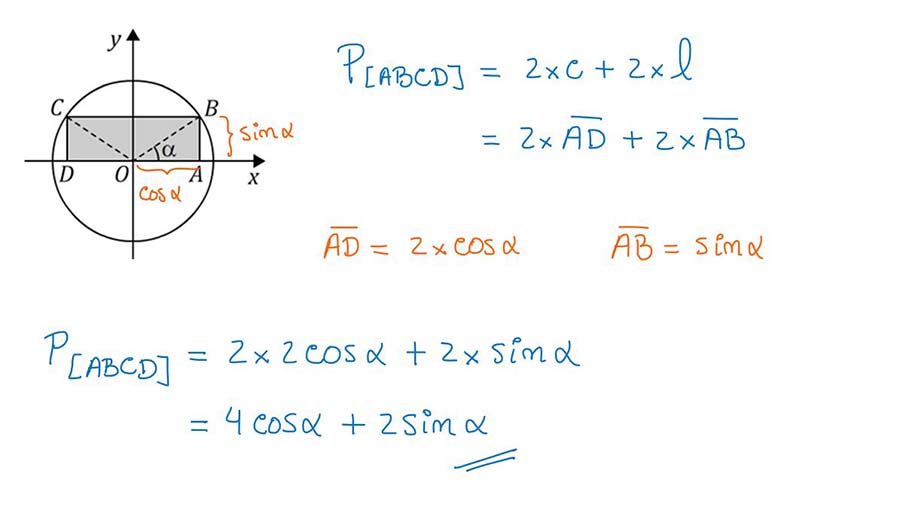 y
C
B
sinα
α
D
O
A
x
cosα
P[ABCD] = 2×c + 2×l
= 2×A̅D̅ + 2×A̅B̅
A̅D̅ = 2×cosα
A̅B̅ = sinα
P[ABCD] = 2×2cosα + 2×sinα
= 4cosα + 2sinα